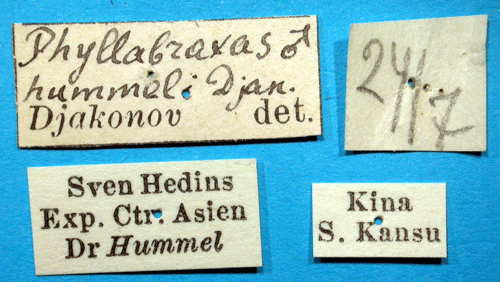 Phyllabraxas ♂
hummeli Djan.
Djakonov det.
24/7
Sven Hedins
Exp. Ctr. Asien
Dr Hummel
Kina
S. Kansu